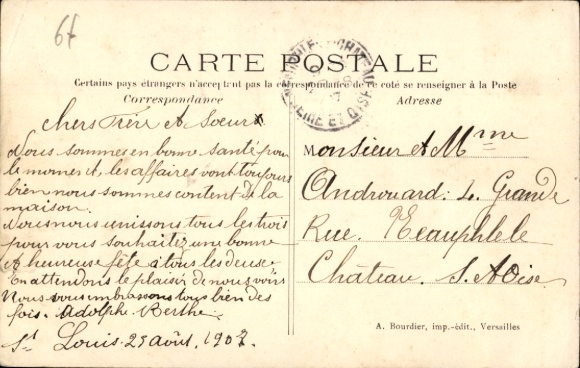 67
CARTE POSTALE
Certains pays étrangers n'acceptent pas la correspondance de ce coté se renseigner à la Poste
Correspondance
Adresse
Chers Frère et Soeur
Nous sommes en bonne santé pour
le moment, les affaires vont toujours
bien nous sommes content de la
maison.
Nous nous unissons tous les trois
pour vous souhaitez une bonne
et heureuse fête a tous les deuse
En attendons le plaisir de nous voirs
Nous vous embrassons tous bien des
fois. Adolphe Berthe
St Louis 25 août, 1907.
Monsieur et Mme
Androuard. 4. Grande
Rue. Neauphle le
Chateau. S. et Oise
A. Bourdier, imp.-édit., Versailles